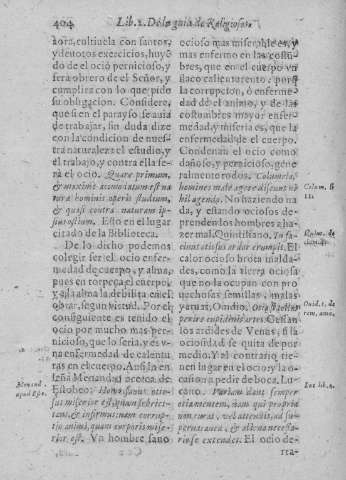 404 Lib. 2. De la guia de Religiosas
aora, cultiuela con santos,
y deuotos exercicios, huyẽ
do de el ocio pernicioso, y
serà obrero de el Señor, y
cumplirà con lo que pide
su obligacion. Considere,
que si en el parayso se auia
de trabajar, sin duda dize
con la condicion de nues-
tra naturaleza el estudio, y
el trabajo, y contra ella se-
rà el ocio. Quare primum,
tura hominis operis studium,
& quasi contra naturam ip-
sius otium. Ello en el lugar
citado de la Biblioteca.
De lo dicho podemos
colegir ser el ocio enfer-
medad de cuerpo, y alma,
pues en torpeça el cuerpo,
y a la alma la debilita en el
obrar, segun virtud. Por el
consiguiente es tenido el
ocio por mucho mas per-
nicioso, que lo seria, y es v-
na enfermedad de calentu
ras en el cuerpo. Assi lo en
seña Menandro acerca de
Estobeo: Homo sanus otio-
sus miserior est ipsum febrici-
tante,
tio animi, quam corporis mise-
rior est. Vn hombre sano
ocioso mas miserable es, y
mas enfermo en las costũ-
bres, que en el cuerpo vn
flaco calenturiento: porq̃
la corrupcion, ò enferme-
dad de el animo, y de las
costumbres mayor enfer-
medad, y miseria es, que la
enfermedad de el cuerpo.
Condenan el ocio como
dañoso, y pernicioso, gene
ralmente todos. Columela,
homines male agere discunt ni
hil agendo. No haziendo na
da, y estando ociosos de-
prenden los hombres a ha-
zer mal. Quintiliano.
El
calor ocioso brota malda-
des, como la tierra ociosa
que no la ocupan con pro
uechosas semillas, malas
yeruas. Ouidio. Otia si tollas
periere cupidinis artes. Cessan
los ardides de Venus, si la
ociosidad se quita de por
medio. Y al contrario tie-
nen lugar en el ocio, y la o-
casion a pedir de boca. Lu-
cano. Variam dant semper
otia mentem,
El ocio de-
rra-
Menand.
apud
Colum. li
11.
Quint. de
Ouid. 1. de
rem, amo.
Luc lib. 4.